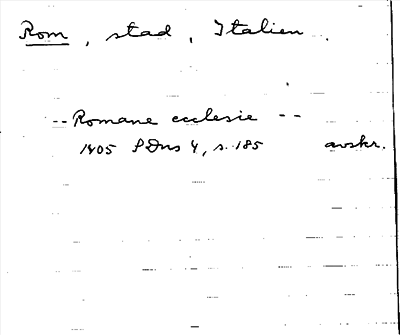 Rom, stad, Italien.
-- Romane ecclesie --
1405 SDns 4, s. 185 avskr.